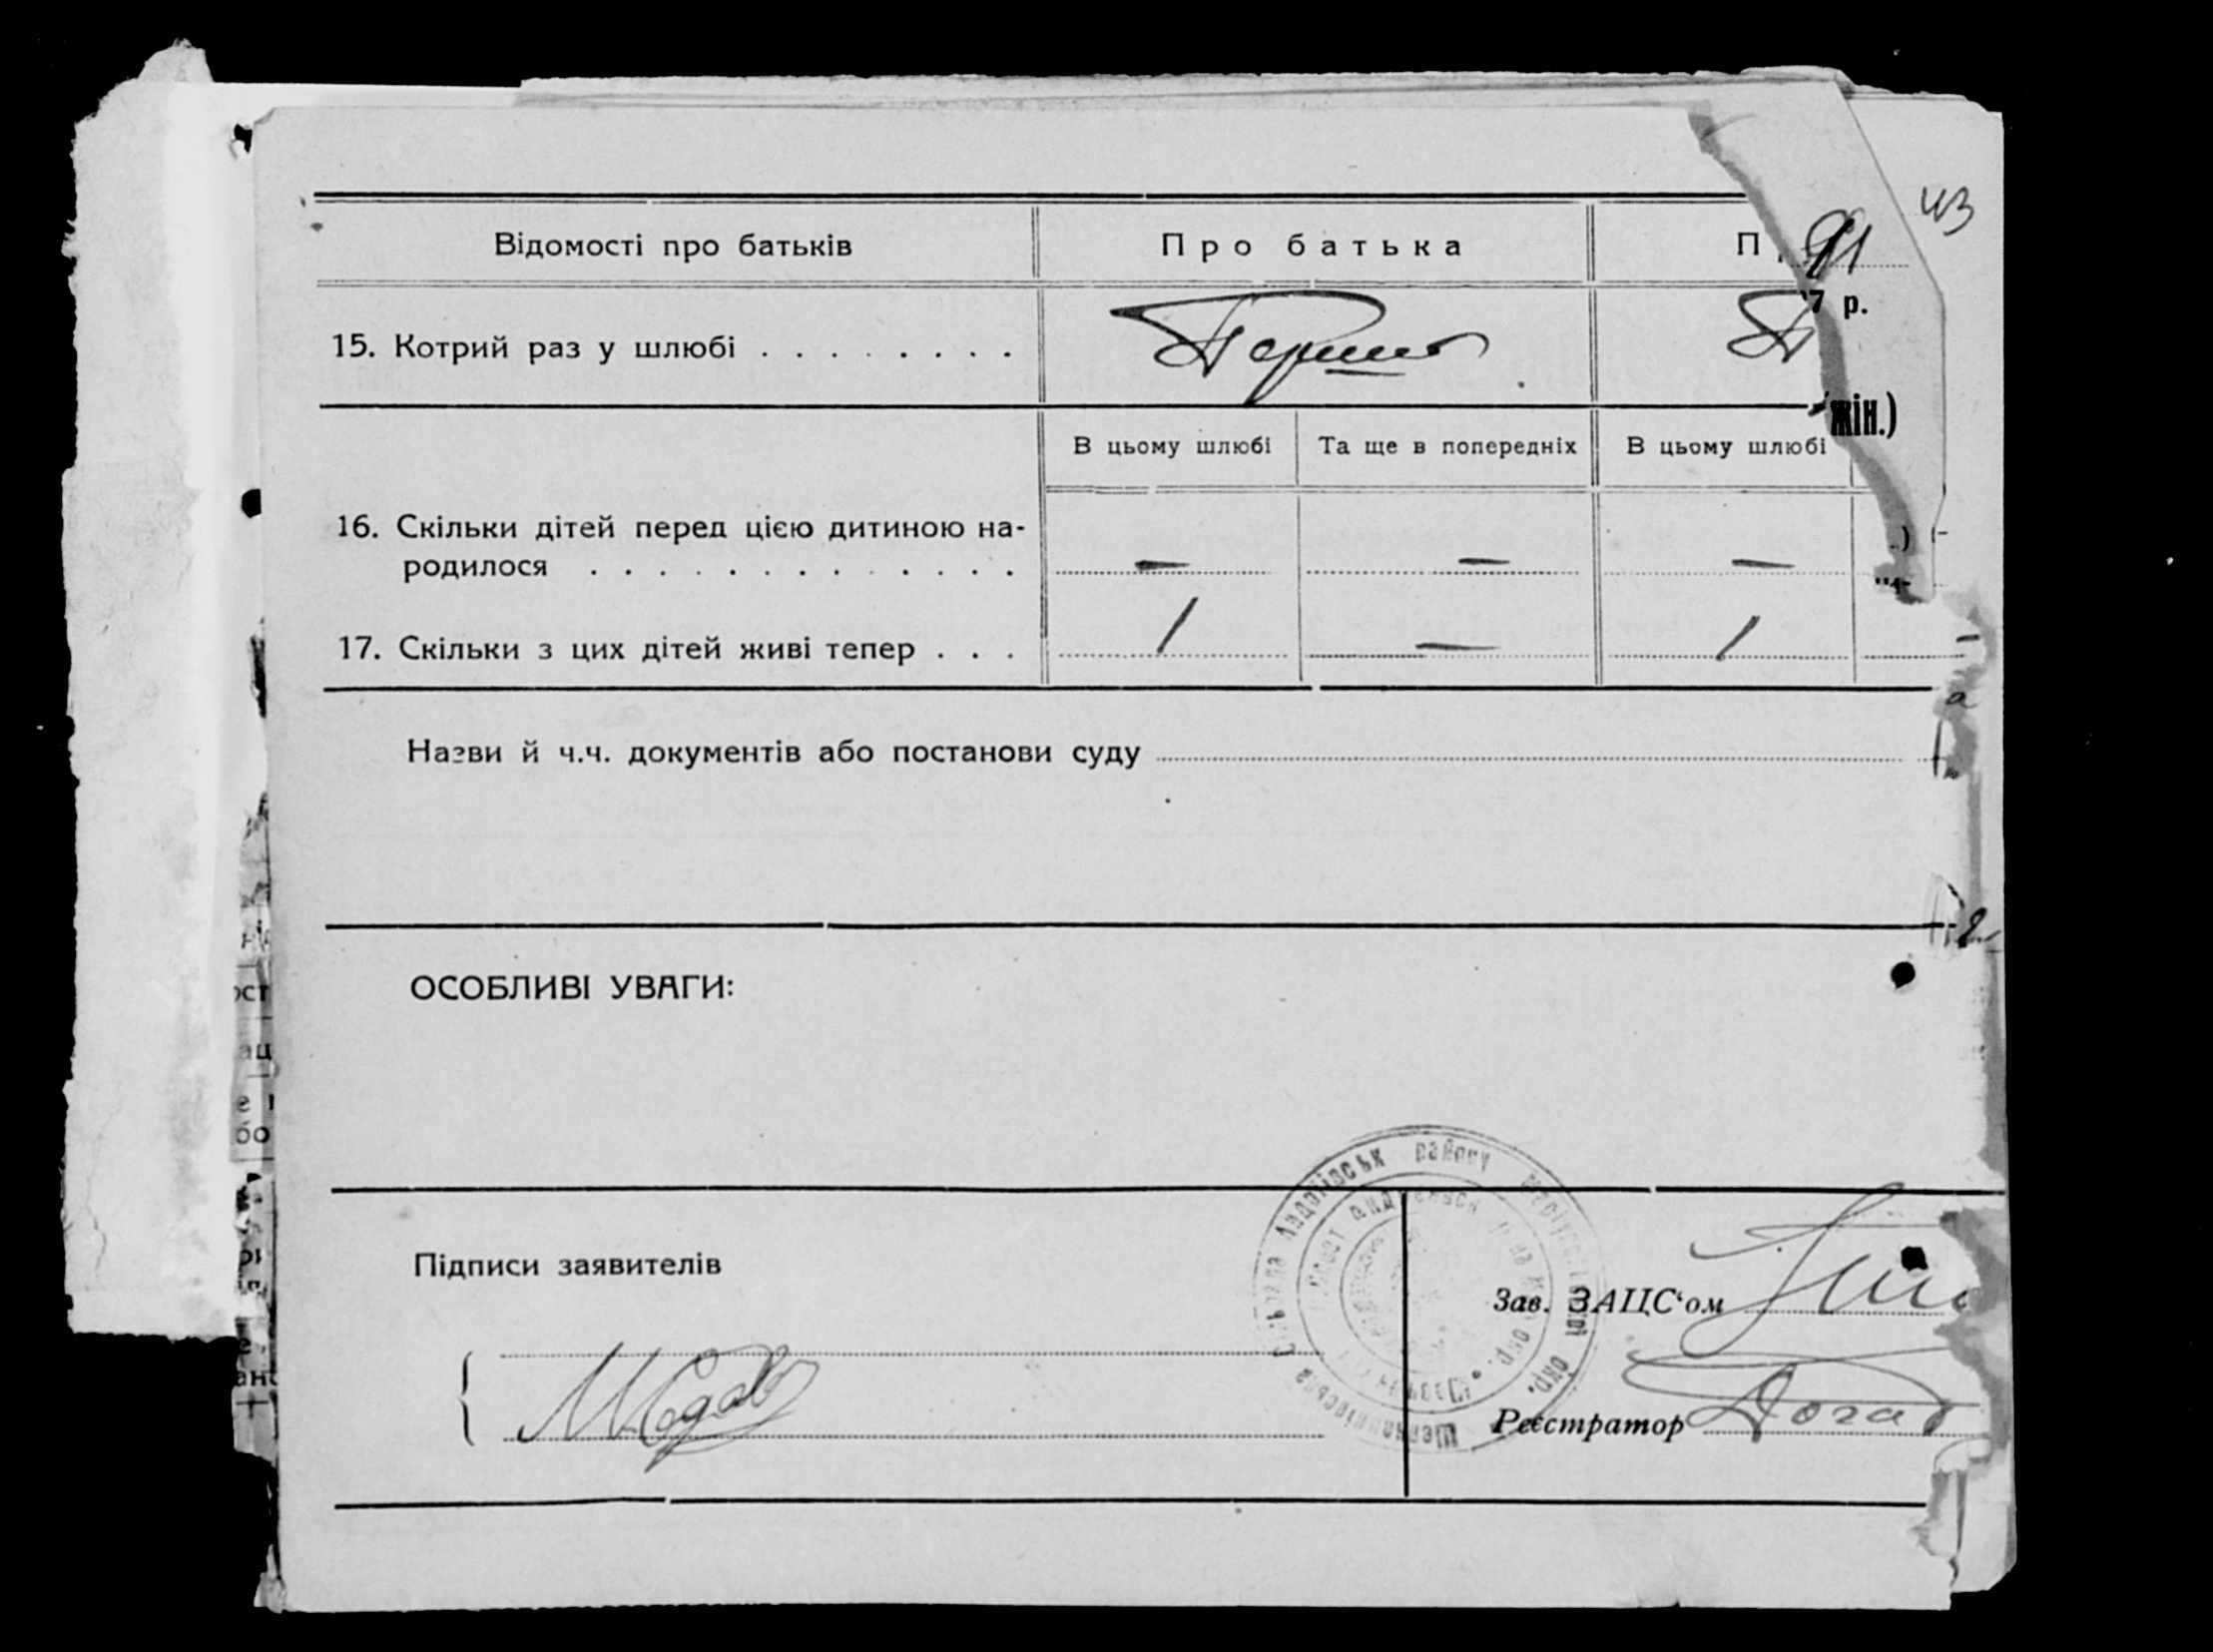 43
Відомості про батьків Про батька П
91
7 р.
15. Котрий раз у шлюбі . . . . . . . . Перший
жін.)
В цьому шлюбі Та ще в попередніх В цьому шлюбі
16. Скільки дітей перед цією дитиною на-
родилося . . . . . . . . . . . . . — — —
17. Скільки з цих дітей живі тепер . . . 1 — 1
Назви й ч.ч. документів або постанови суду
ОСОБЛИВІ УВАГИ:
району
окр.
Підписи заявителів
Зав. ЗАЦС‘ом
Реєстратор